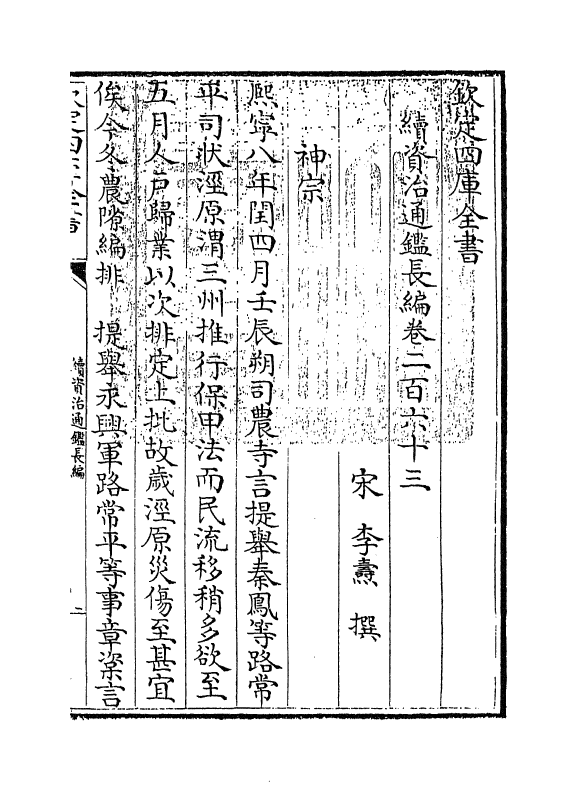 欽定四庫全書
續資治通鑑長編卷二百六十三
宋 李燾 撰
神宗
熙寧八年閏四月壬辰朔司農寺言提舉秦鳳等路常
平司狀涇原渭三州推行保甲法而民流移稍多欲至
五月人户歸業以次排定上批故歳涇原災傷至甚宜
俟今冬農隙編排 提舉永興軍路常平等事章楶言
欽定四庫全書
續資治通鑑長編